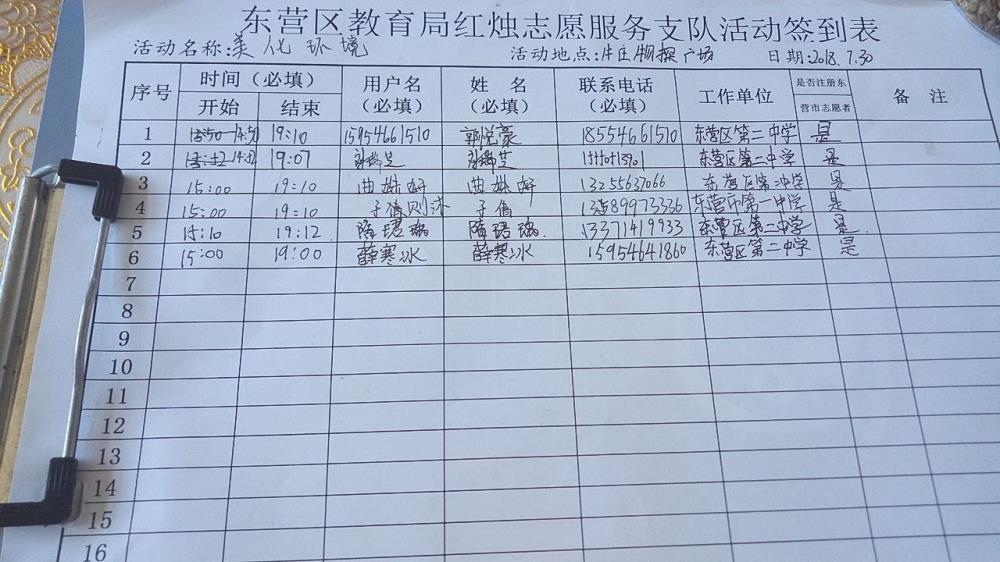 东营区教育局红烛志愿服务支队活动签到表
活动名称:美化环境 活动地点: 广场 日期:2018.7.30
序号 时间(必填) 用户名(必填) 姓名(必填) 联系电话(必填) 工作单位 是否注册东营市志愿者 备注
开始 结束
1 19:10 15954661510 郭悦豪 18554661510 东营区第二中学 是
2 19:07 东营区第二中学 是
3 15:00 19:10 曲姝妤 曲姝妤 13255637066 东营区第二中学 是
4 15:00 19:10 东营市第一中学 是
5 15:10 19:12 隋珺瑶 隋珺瑶 13371419933 东营区第二中学 是
6 15:00 19:00 薛寒冰 薛寒冰 15954641860 东营区第二中学 是
7
8
9
10
11
12
13
14
15
16